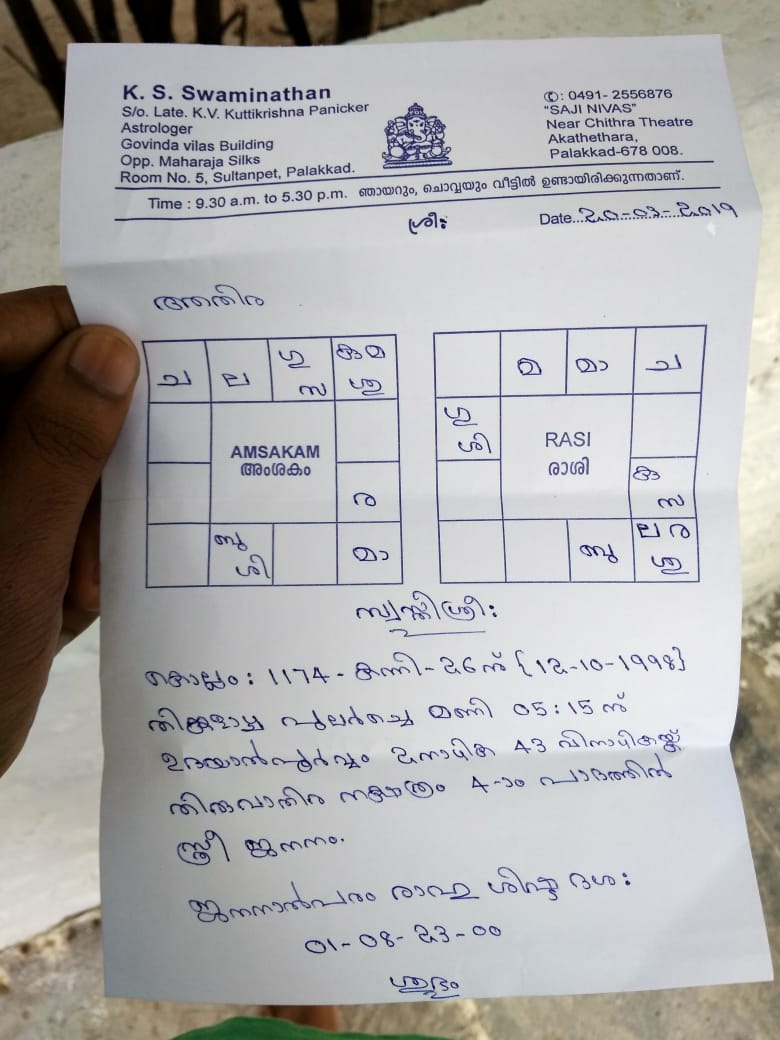 K. S. Swaminathan
S/o. Late. K.V. Kuttikrishna Panicker
Astrologer
Govinda vilas Building
Opp. Maharaja Silks
Room No. 5, Sultanpet, Palakkad.
✆: 0491- 2556876
"SAJI NIVAS"
Near Chithra Theatre
Akathethara,
Palakkad-678 008.
Time : 9.30 a.m. to 5.30 p.m. ഞായറും, ചൊവ്വയും വീട്ടിൽ ഉണ്ടായിരിക്കുന്നതാണ്.
ശ്രീഃ
Date...20-03-2019
ആതിര
ച ല ഗു കു മ
സ ശു
AMSAKAM
അംശകം
ര
ബു മാ
ശി
മ മാ ച
ഗു
ശി
RASI
രാശി
കു
സ
ബു ല ര
ശു
സ്വസ്തിശ്രീ:
കൊല്ലം : 1174 - കന്നി - 26 ന് {12-10-1998}
തിങ്കളാഴ്ച പുലർച്ചെ മണി 05:15 ന്
ഉദയാൽപൂർവ്വം 2 നാഴിക 43 വിനാഴികയ്ക്ക്
തിരുവാതിര നക്ഷത്രം 4-ാം പാദത്തിൽ
സ്ത്രീ ജനനം.
ജനനാൽപരം രാഹു ശിഷ്ട ദശ:
01-08-23-00
ശുഭം